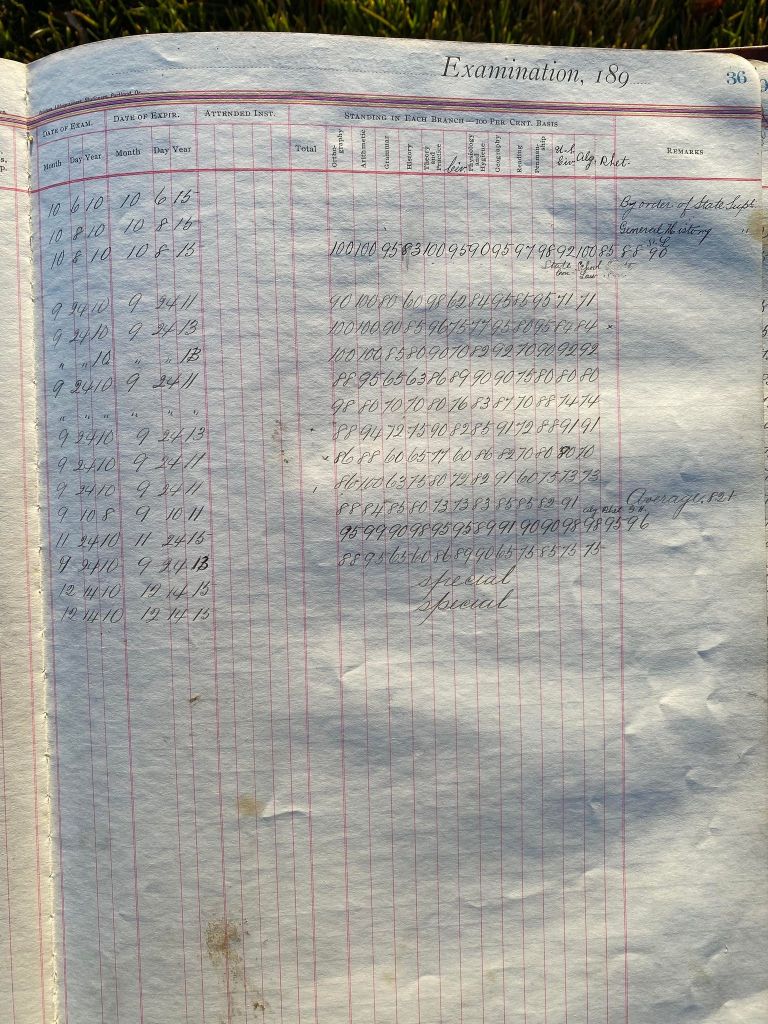 Examination, 189
36
DATE OF EXAM. DATE OF EXPIR. ATTENDED INST. STANDING IN EACH BRANCH—100 PER CENT. BASIS
Month Day Year Month Day Year Total Orthography Arithmetic Grammar History Theory and Practice Civ. Physiology and Hygiene Geography Reading Penmanship U.S. Civ. Alg. Rhet. REMARKS
10 6 10 10 6 15 By order of State Supt
10 8 10 10 8 15 General History "
10 8 10 10 8 15 100 100 95 83 100 95 90 95 97 98 92 100 85 88 90
State School
Law
9 24 10 9 24 11 90 100 80 60 98 62 84 95 85 95 71 71
9 24 10 9 24 13 100 100 90 85 96 75 77 95 80 95 84 84 x
" " 10 " " 13 100 100 85 80 90 70 82 92 70 90 92 92
9 24 10 9 24 11 88 95 65 63 86 89 90 90 75 80 80 80
" " " " " " 98 80 70 70 80 76 83 87 70 88 74 74
9 24 10 9 24 13 88 94 72 75 90 82 85 91 72 88 91 91
9 24 10 9 24 11 x 86 88 60 65 77 60 86 82 70 80 80 70
9 24 10 9 24 11 86 100 63 75 80 72 82 91 60 75 73 73
9 10 8 9 10 11 88 84 85 80 73 73 83 85 85 82 91 Average, 82+
Alg Rhet
11 24 10 11 24 15 95 99 90 98 95 95 89 91 90 90 98 98 95 96
9 24 10 9 24 13 88 95 65 60 86 89 90 65 75 85 75 75
special
12 14 10 12 14 15 special
12 14 10 12 14 15